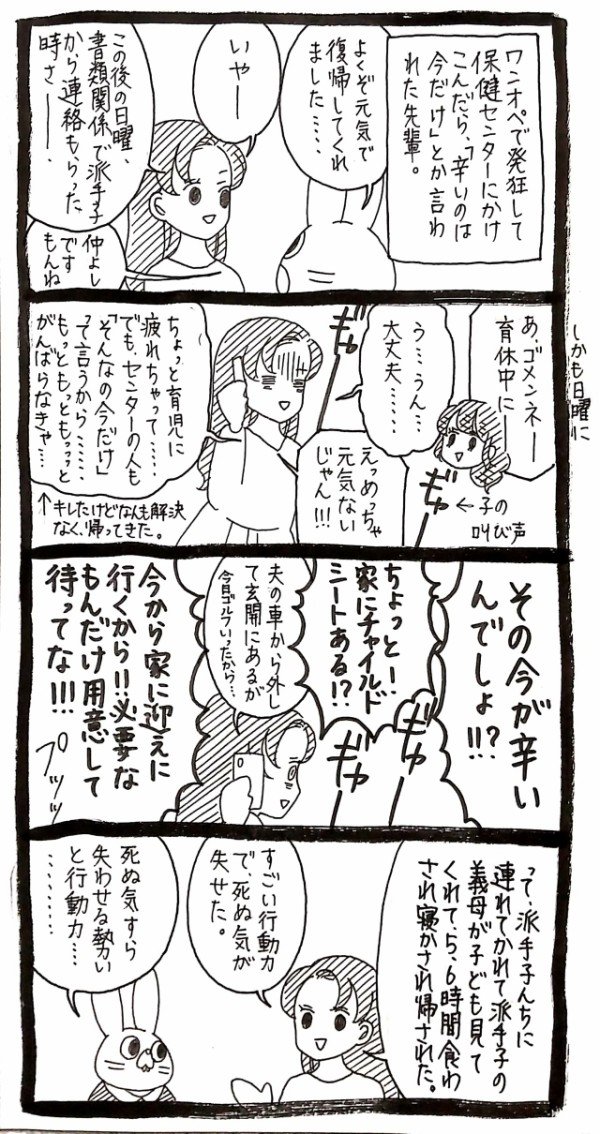 ワンオペで発狂して
保健センターにかけ
こんだら、「辛いのは
今だけ」とか言わ
れた先輩。
よくぞ元気で
復帰してくれ
ました……
いやー
この後の日曜、
書類関係で派手子
から連絡もらった
時さー、
仲よし
です
もんね
しかも日曜に
あ、ゴメンネー
育休中に
う…うん…
大丈夫……
ギャー
←子の
叫び声
えっめっちゃ
元気ない
じゃん!!!
ちょっと育児に
疲れちゃって……
でも、センターの人も
「そんなの今だけ」
って言うから……
もっともっともっっと
がんばらなきゃ…
↑キレたけどなんも解決
なく、帰ってきた。
その今が辛い
んでしょ!!?
ギャー
ちょっと!
家にチャイルド
シートある!?
ギャー
夫の車から外し
て玄関にあるが
今日ゴルフいったから…
今から家に迎えに
行くから!!必要な
もんだけ用意して
待ってな!!!
プツッ
って、派手子んちに
連れてかれて派手子の
義母が子ども見て
くれて5、6時間食わ
され寝かされ帰された。
すごい行動力
で、死ぬ気が
失せた。
死ぬ気すら
失わせる勢い
と行動力…
………